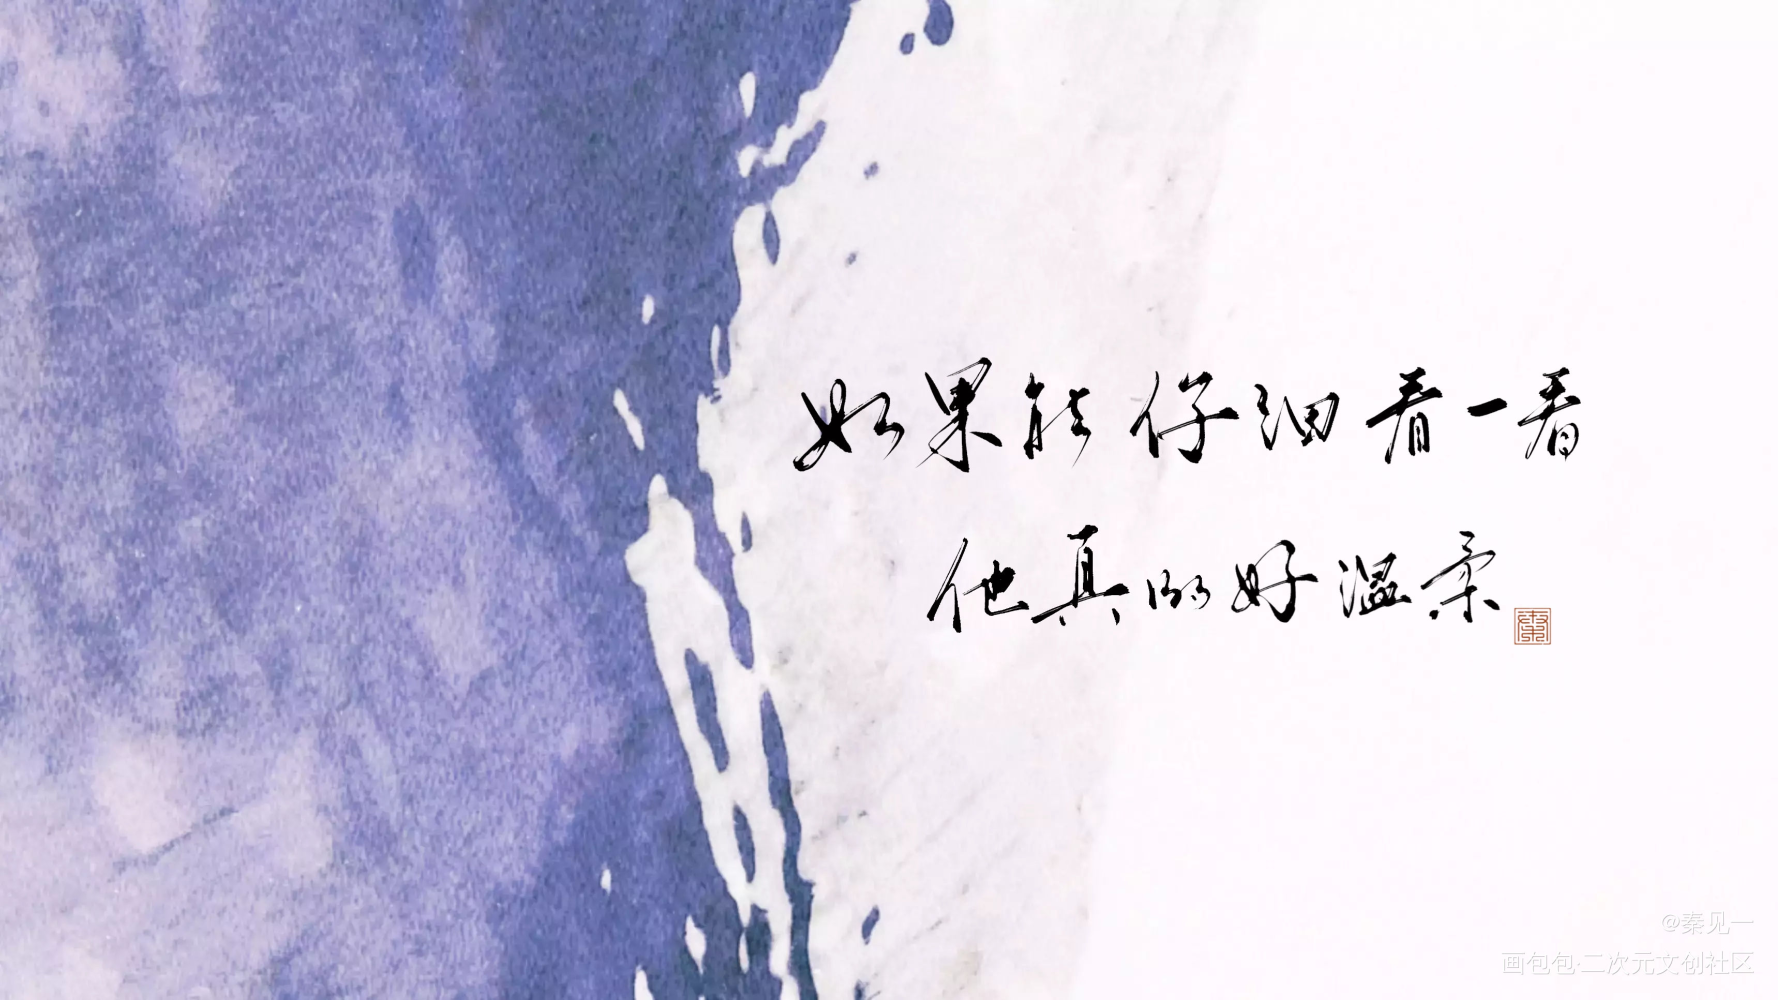 如果能仔细看一看
他真的好温柔
@秦见一
画包包·二次元文创社区